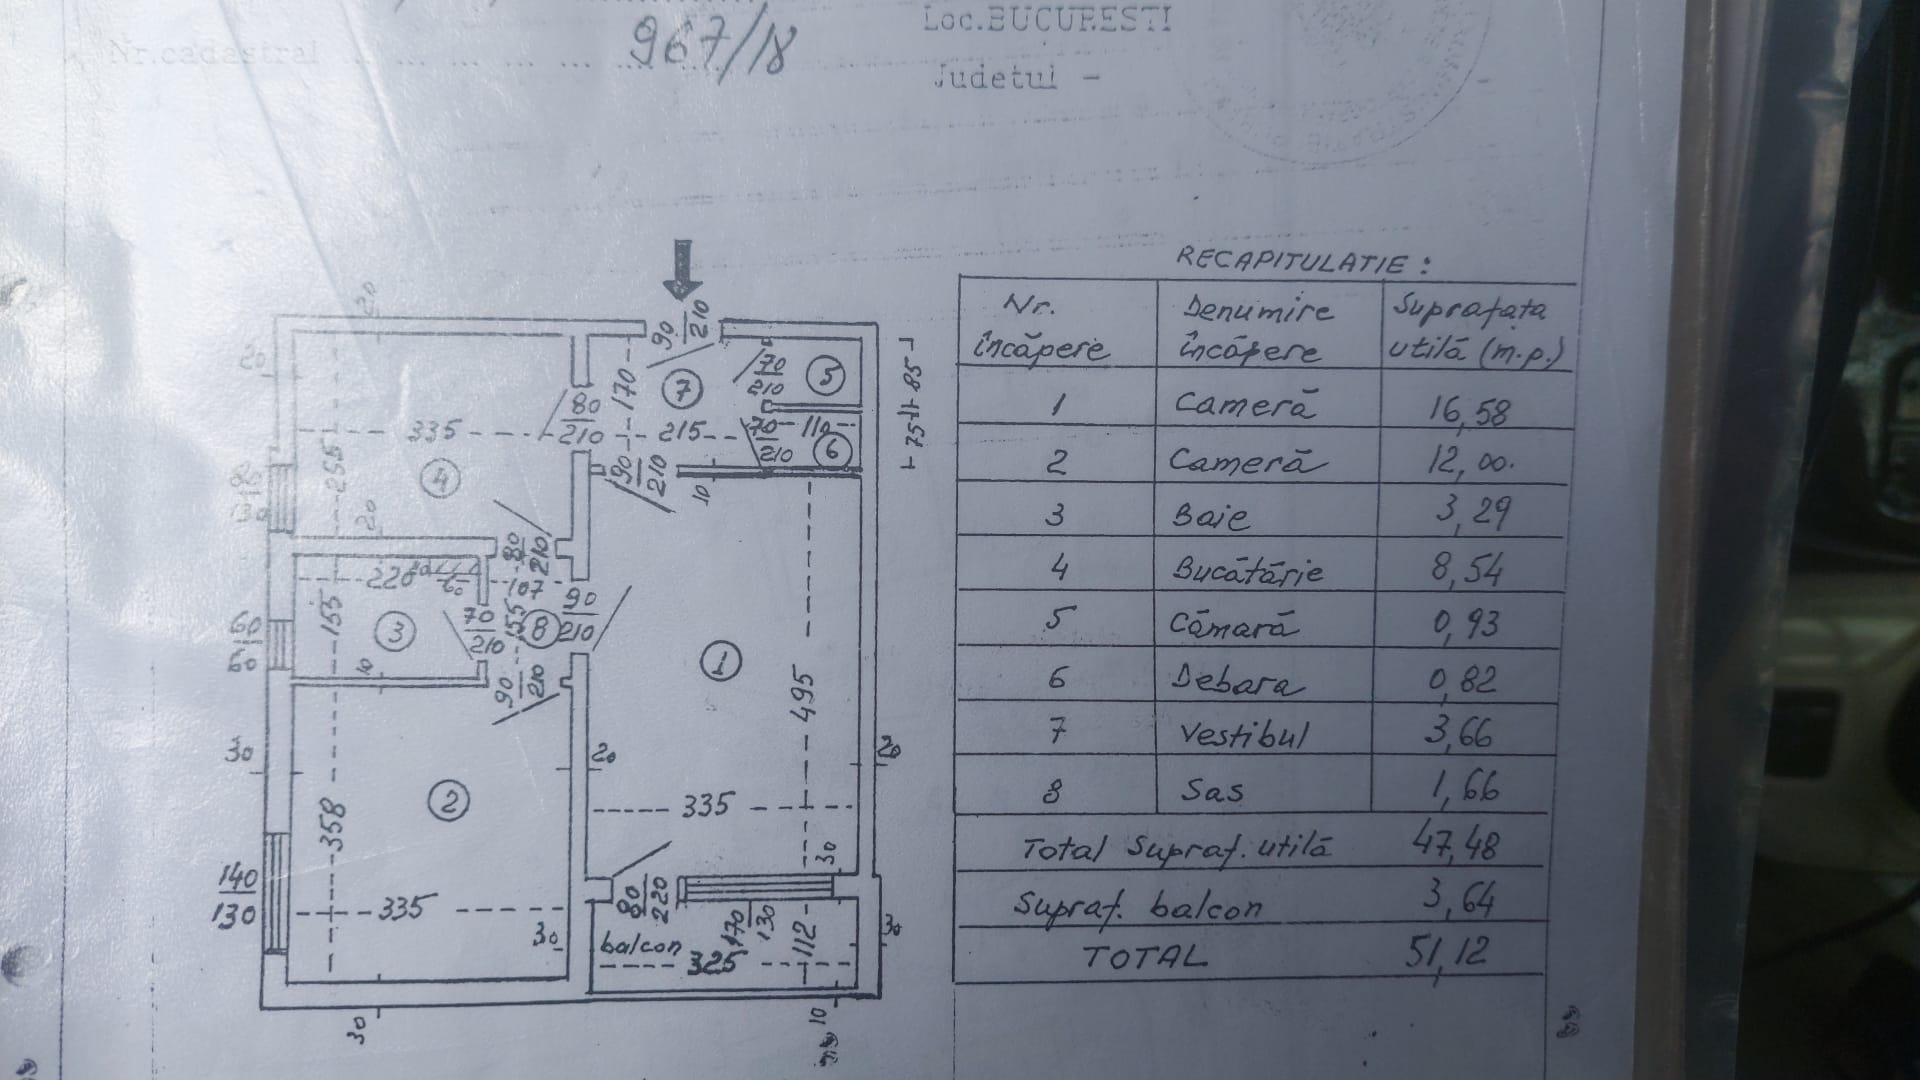 Loc.BUCURESTI
Nr.cadastral ... ... ... ... ... 967/18
Judetul -
RECAPITULATIE :
Nr. încăpere Denumire încăpere Suprafața utilă (m.p.)
1 Cameră 16,58
2 Cameră 12,00.
3 Baie 3,29
4 Bucătărie 8,54
5 Cămară 0,93
6 Debara 0,82
7 Vestibul 3,66
8 Sas 1,66
Total Supraf. utilă 47,48
Supraf. balcon 3,64
TOTAL 51,12
20
90
210
20
170
7
70
210
5
85
75
80
210
335
215
70
210
110
6
255
4
90
210
10
20
80
210
220
60
107
155
3
70
210
155
8
90
210
60
60
10
90
210
1
495
30
20
20
2
335
358
30
140
130
335
30
80
220
170
130
112
30
balcon
325
30
10